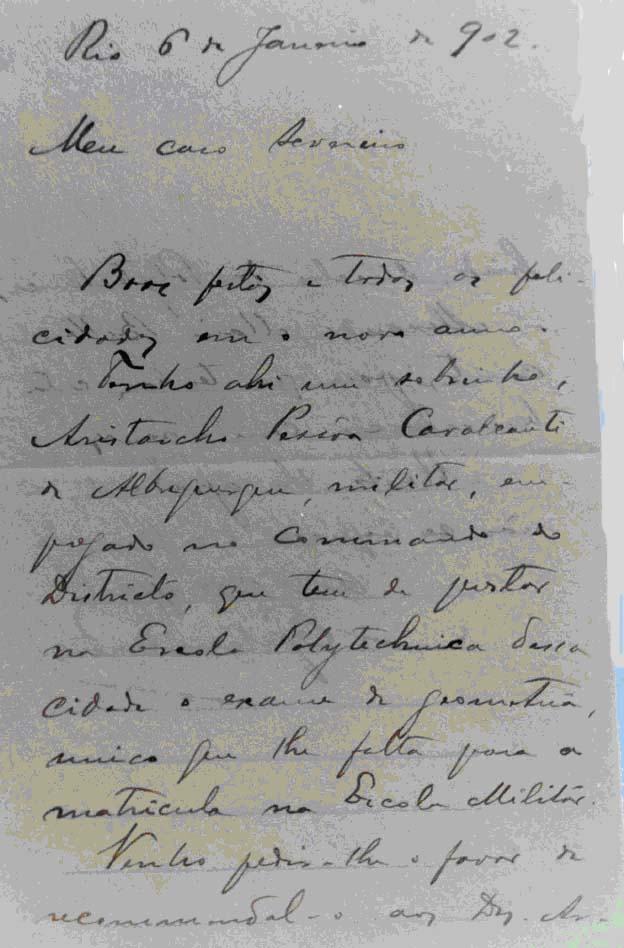 Rio 6 de Janeiro de 902.
Meu caro Severino
Boas festas e todas as feli-
cidades em o novo anno.
Tenho ahi um sobrinho,
Aristarcho Pessôa Cavalcanti
de Albuquerque, militar, em-
pregado no Commando do
Districto, que tem de prestar
na Escola Polytechnica dessa
cidade o exame de geometria,
unico que lhe falta para a
matricula na Escola Militar.
Venho pedir-lhe o favor de
recommendal-o aos Drs. Ar-